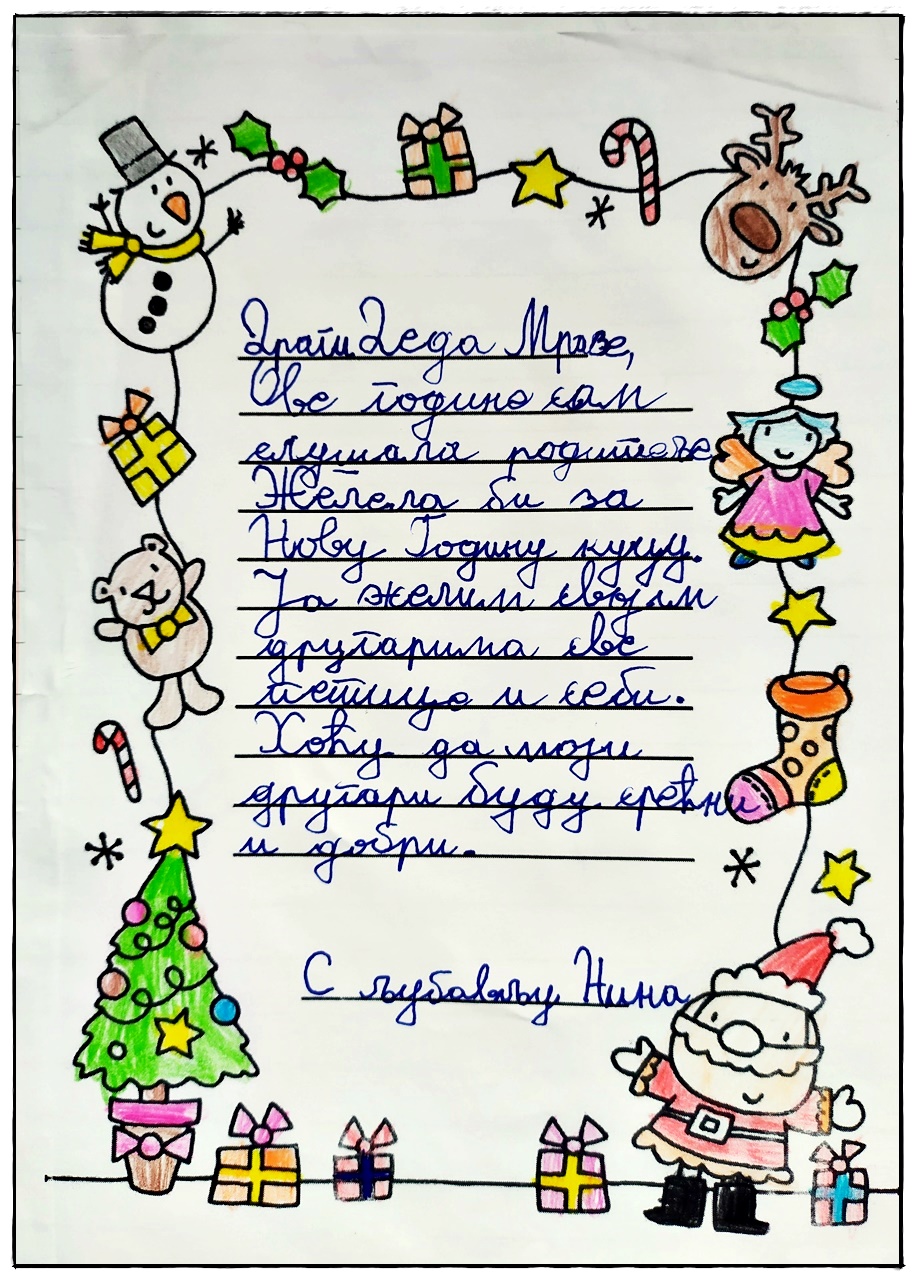 Драги Деда Мразе,
Ове године сам
слушала родитеље.
Желела би за
Нову Годину куцу.
Ја желим својим
другарима све
петице и себи.
Хоћу да моји
другари буду срећни
и добри.
С љубављу Нина